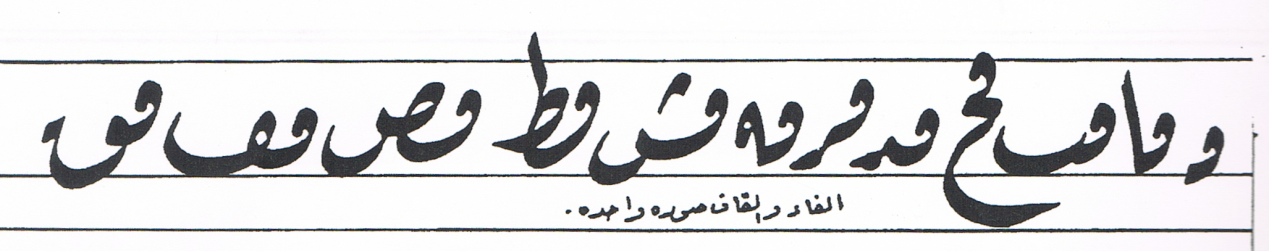 و فا فب فح فد فر فه فس فط فص فف فق
الفاء والقاف صوره واحده.